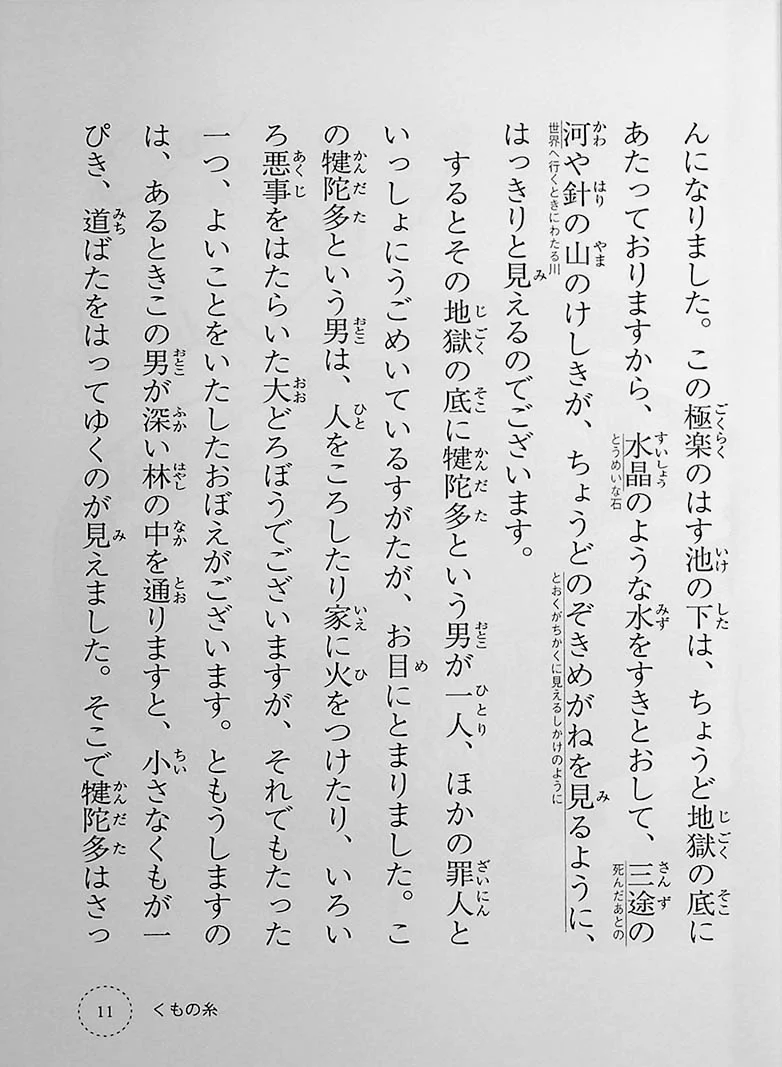 んになりました。この極楽のはす池の下は、ちょうど地獄の底に
ごくらく
いけ
した
じごく
そこ
あたっておりますから、水晶のような水をすきとおして、三途の
すいしょう
みず
さんず
とうめいな石
死んだあとの
河や針の山のけしきが、ちょうどのぞきめがねを見るように、
かわ
はり
やま
み
世界へ行くときにわたる川
とおくがちかくに見えるしかけのように
はっきりと見えるのでございます。
み
するとその地獄の底に犍陀多という男が一人、ほかの罪人と
じごく
そこ
かんだた
おとこ
ひとり
ざいにん
いっしょにうごめいているすがたが、お目にとまりました。こ
め
の犍陀多という男は、人をころしたり家に火をつけたり、いろい
かんだた
おとこ
ひと
いえ
ひ
ろ悪事をはたらいた大どろぼうでございますが、それでもたった
あくじ
おお
一つ、よいことをいたしたおぼえがございます。ともうしますの
は、あるときこの男が深い林の中を通りますと、小さなくもが一
おとこ
ふか
はやし
なか
とお
ちい
ぴき、道ばたをはってゆくのが見えました。そこで犍陀多はさっ
みち
み
かんだた
11
くもの糸